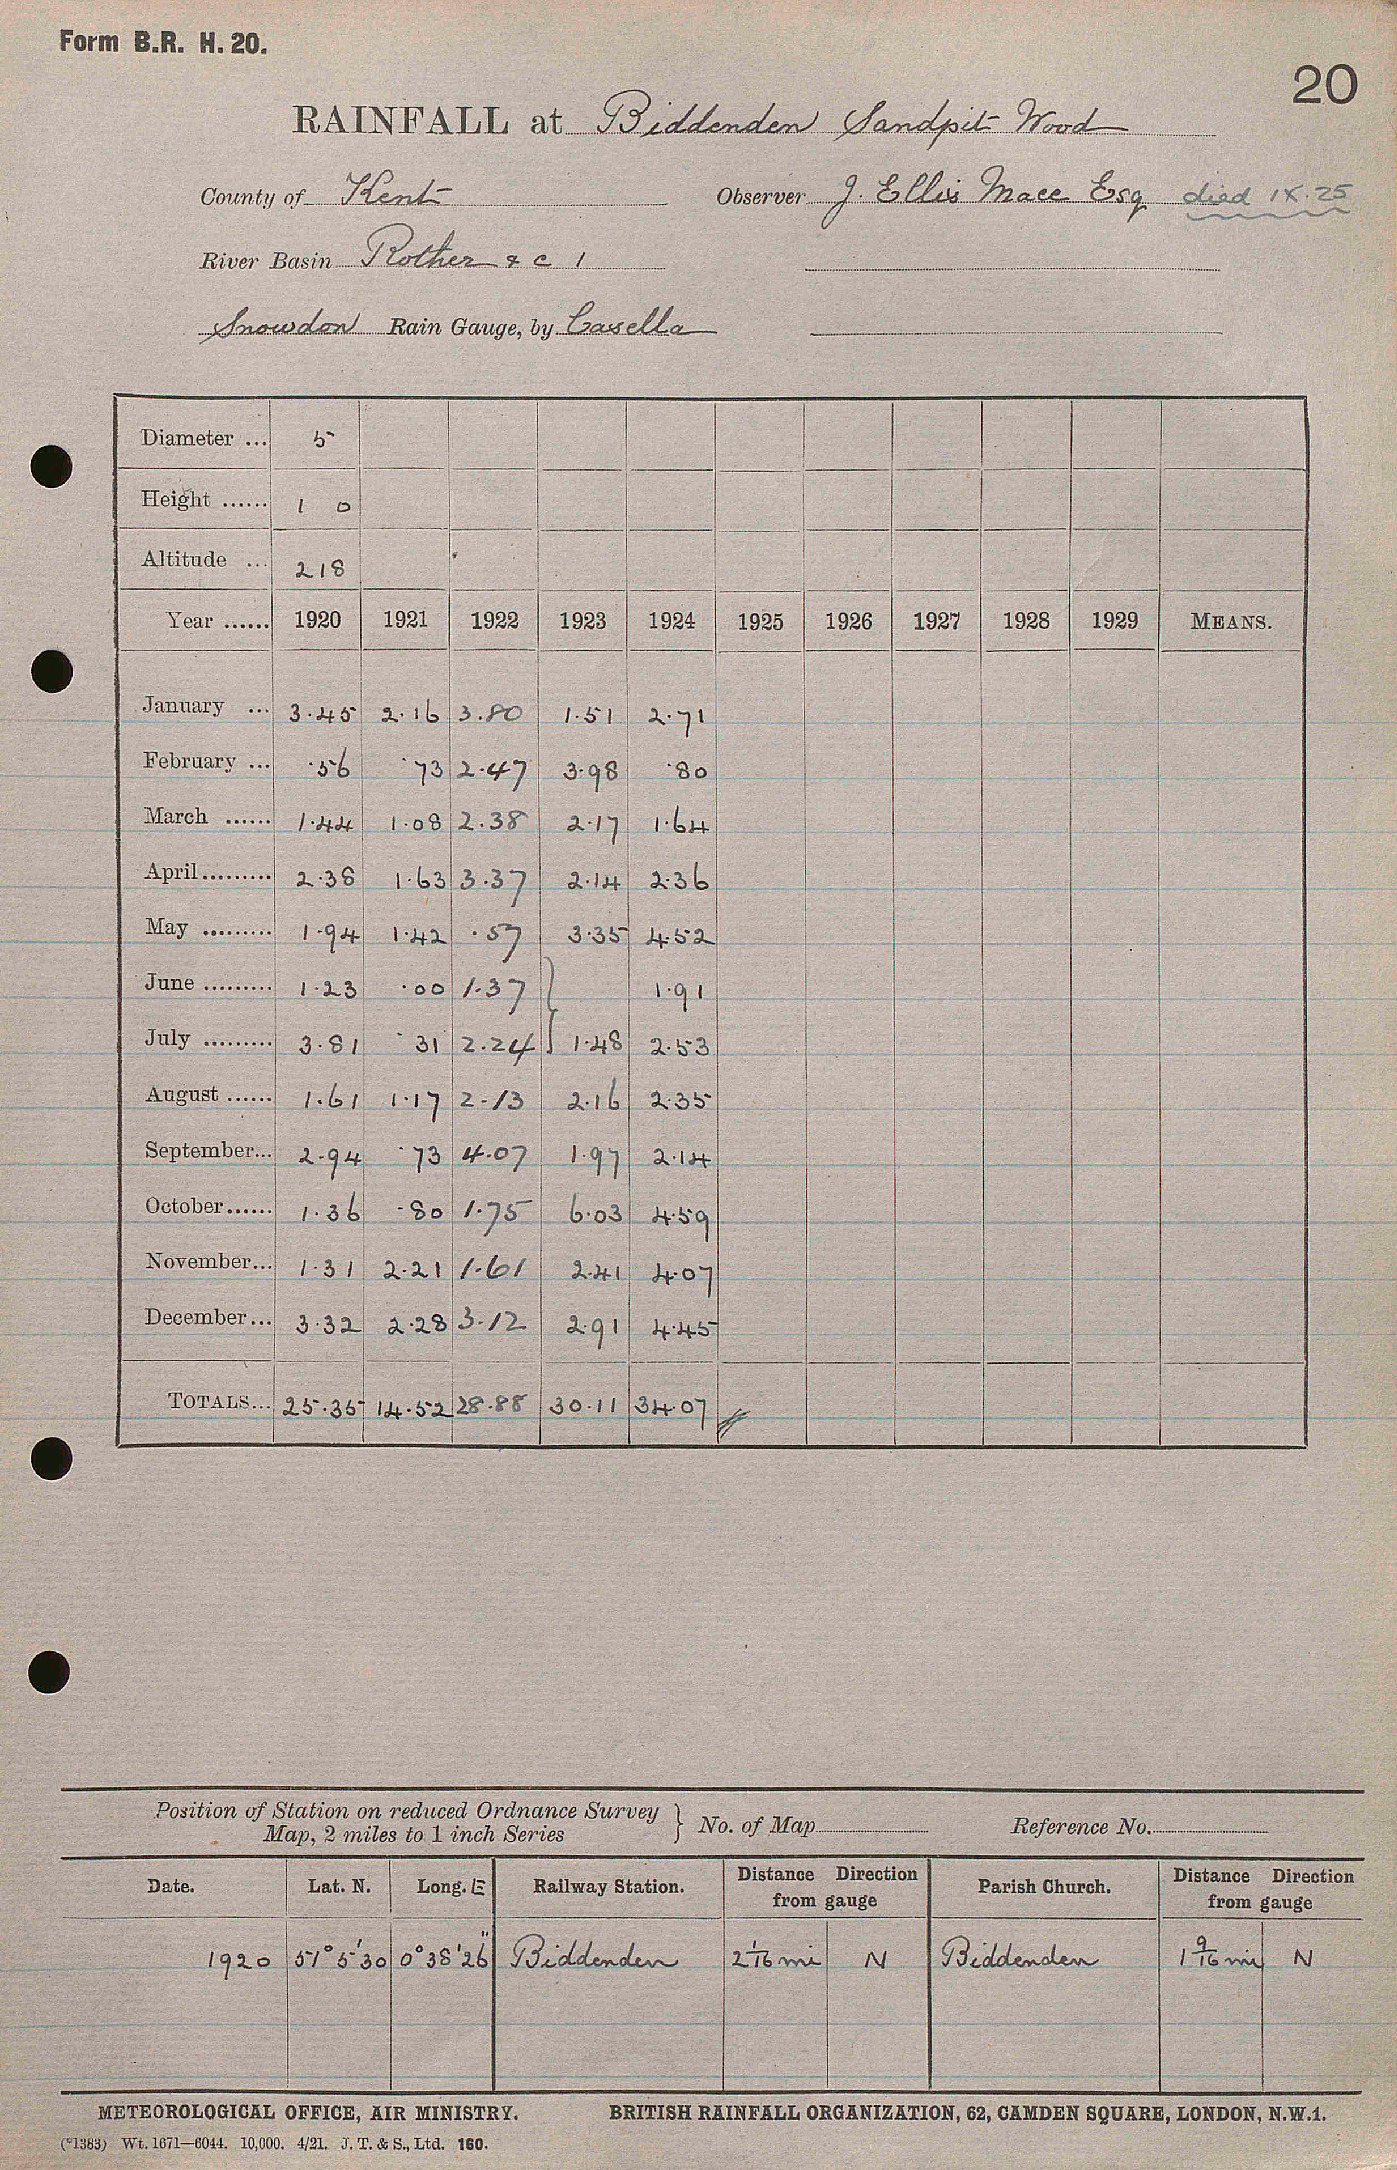 Form B.R. H. 20.
20
RAINFALL at Biddenden Sandpit Wood
County of Kent Observer J. Ellis Mace Esq died IX.25
River Basin Rother & c 1
Snowdon Rain Gauge, by Casella
Diameter ... 5
Height ...... 1 0
Altitude ... 218
Year ...... 1920 1921 1922 1923 1924 1925 1926 1927 1928 1929 MEANS.
January ... 3.45 2.16 3.80 1.51 2.71
February ... .56 .73 2.47 3.98 .80
March ...... 1.44 1.08 2.38 2.17 1.64
April......... 2.38 1.63 3.37 2.14 2.36
May ......... 1.94 1.42 .57 3.35 4.52
June ......... 1.23 .00 1.37 } 1.91
July ......... 3.81 .31 2.24 1.48 2.53
August ...... 1.61 1.17 2.13 2.16 2.35
September... 2.94 .73 4.07 1.97 2.14
October...... 1.36 .80 1.75 6.03 4.59
November... 1.31 2.21 1.61 2.41 4.07
December... 3.32 2.28 3.12 2.91 4.45
TOTALS... 25.35 14.52 28.88 30.11 34.07
Position of Station on reduced Ordnance Survey } No. of Map Reference No.
Map, 2 miles to 1 inch Series
Date. Lat. N. Long. E Railway Station. Distance Direction from gauge Parish Church. Distance Direction from gauge
1920 51° 5' 30 0° 38' 26" Biddenden 2 1/16 mi N Biddenden 1 9/16 mi N
METEOROLOGICAL OFFICE, AIR MINISTRY. BRITISH RAINFALL ORGANIZATION, 62, CAMDEN SQUARE, LONDON, N.W.1.
(*1383) Wt. 1671—6044. 10,000. 4/21. J. T. & S., Ltd. 160.